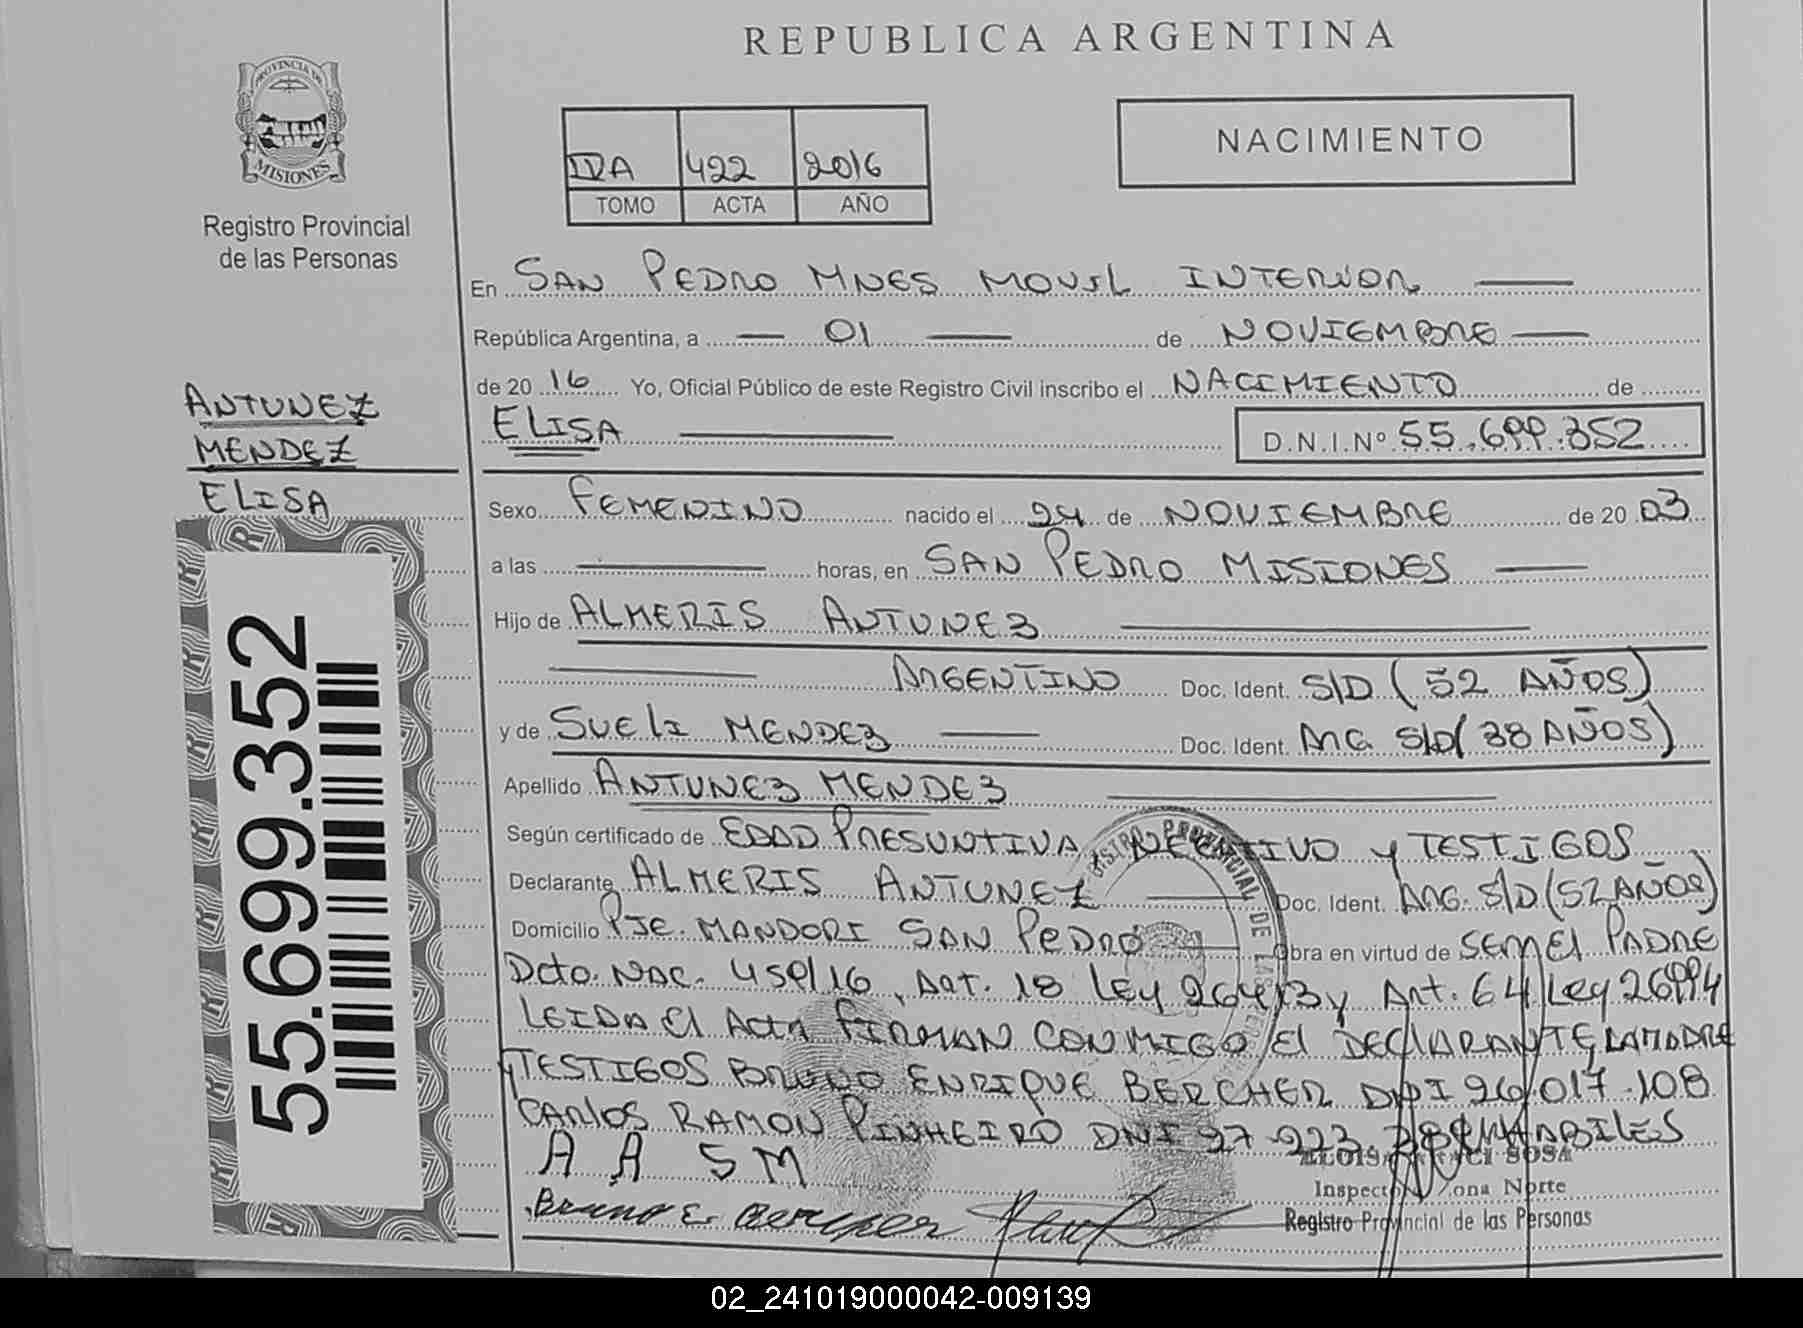 REPUBLICA ARGENTINA
PROVINCIA DE
MISIONES
Registro Provincial
de las Personas
NACIMIENTO
IVA 422 2016
TOMO ACTA AÑO
En SAN PEDRO MNES MOVIL INTERIOR
República Argentina, a 01 de NOVIEMBRE
de 20 16 Yo, Oficial Público de este Registro Civil inscribo el NACIMIENTO de
ELISA D.N.I.Nº 55.699.352
ANTUNEZ
MENDEZ
ELISA
55.699.352
Sexo FEMENINO nacido el 24 de NOVIEMBRE de 20 03
a las horas, en SAN PEDRO MISIONES
Hijo de ALMERIS ANTUNEZ
ARGENTINO Doc. Ident. S/D (52 AÑOS)
y de SUELI MENDEZ Doc. Ident. ARG. S/D (38 AÑOS)
Apellido ANTUNEZ MENDEZ
Según certificado de EDAD PRESUNTIVA, NEGATIVO y TESTIGOS
Declarante ALMERIS ANTUNEZ Doc. Ident. ARG. S/D (52 AÑOS)
Domicilio PJE. MANDORI SAN PEDRO Obra en virtud de SER El PADRE
Dcto. NAC. 459/16, Art. 18 Ley 26413 y Art. 64 Ley 26994
LEIDA El Acta FIRMAN CONMIGO El DECLARANTE, LA MADRE
y TESTIGOS BRUNO ENRIQUE BERCHER DNI 26.017.108
CARLOS RAMON PINHEIRO DNI 27.223. HABILES
A A S M
Bruno E. Bercher
SOSA
Inspector Zona Norte
Registro Provincial de las Personas
02_241019000042-009139